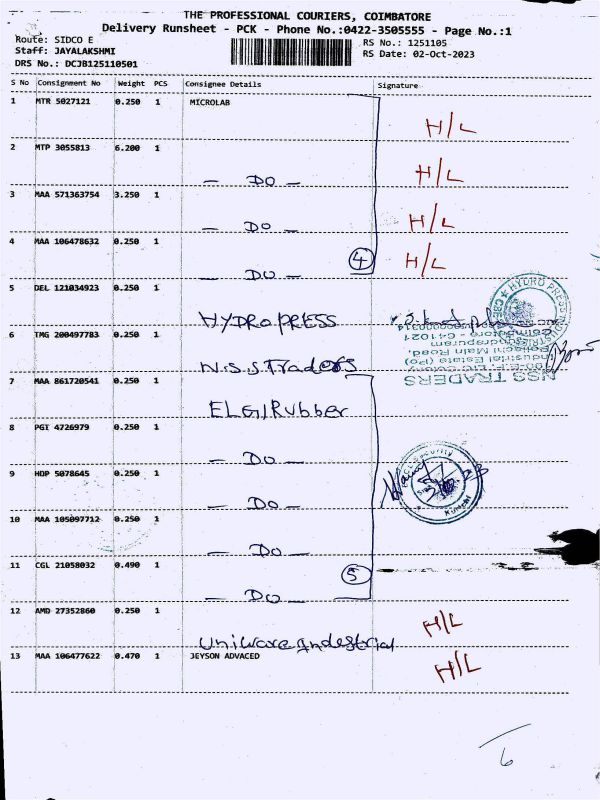 THE PROFESSIONAL COURIERS, COIMBATORE
Delivery Runsheet - PCK - Phone No.:0422-3505555 - Page No.:1
Route: SIDCO E RS No.: 1251105
Staff: JAYALAKSHMI RS Date: 02-Oct-2023
DRS No.: DCJB125110501
S No Consignment No Weight PCS Consignee Details Signature
1 MTR 5027121 0.250 1 MICROLAB H/L
2 MTP 3055813 6.200 1 - DO - H/L
3 MAA 571363754 3.250 1 - DO - H/L
4 MAA 106478632 0.250 1 - DO - 4 H/L
5 DEL 121034923 0.250 1 HYDROPRESS
HYDRO PRESS
CBE
6 TMG 200497783 0.250 1 N.S.S. Traders
NSS TRADERS
Industrial Estate (Po)
Pollachi Main Road,
Coimbatore - 641021
7 MAA 861720541 0.250 1 ELGI Rubber
8 PGT 4726979 0.250 1 - DO -
Security
Kurichi
9 HOP 5078645 0.250 1 - DO -
10 MAA 105097712 0.250 1 - DO -
11 CGL 21058032 0.490 1 - DO - 5
12 AMD 27352860 0.250 1 Uniware Indestrial H/L
13 MAA 106477622 0.470 1 JEYSON ADVACED H/L
6